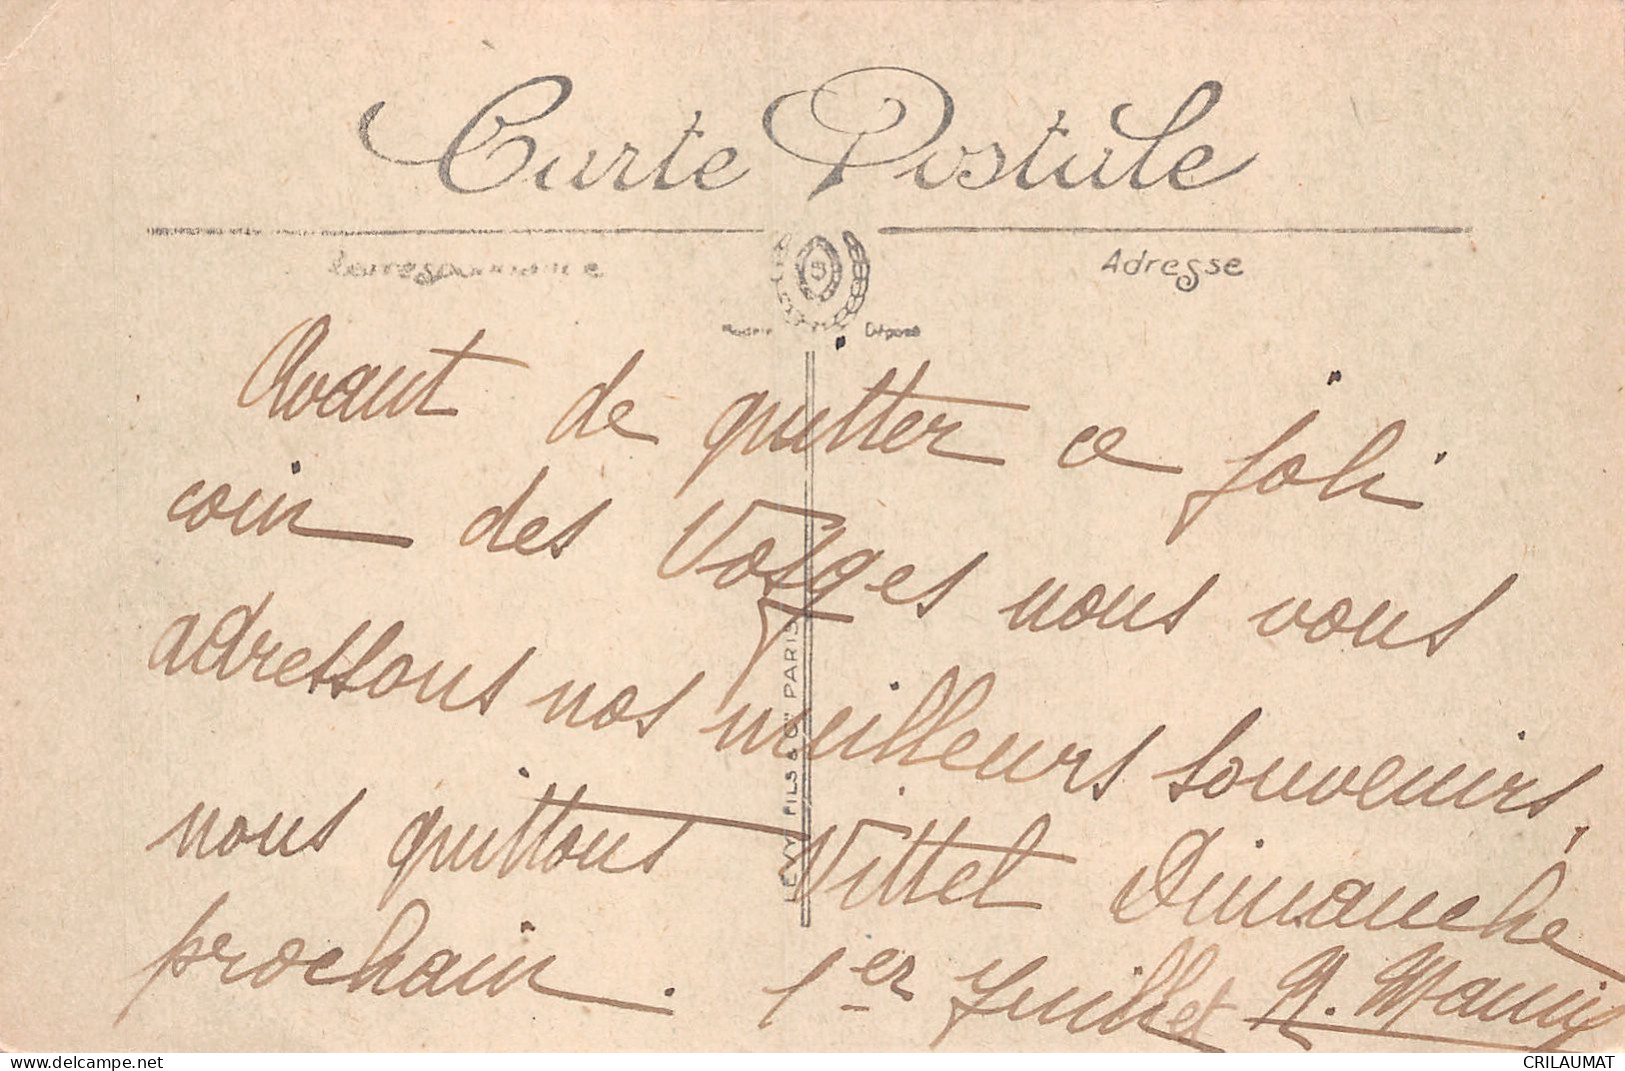 Carte Postale
Correspondance
Adresse
Modèle Déposé
Avant de quitter ce joli
coin des Vosges nous vous
adressons nos meilleurs souvenirs,
nous quittons Vittel Dimanche
prochain. 1er Juillet
LÉVY FILS & Cie PARIS
CRILAUMAT